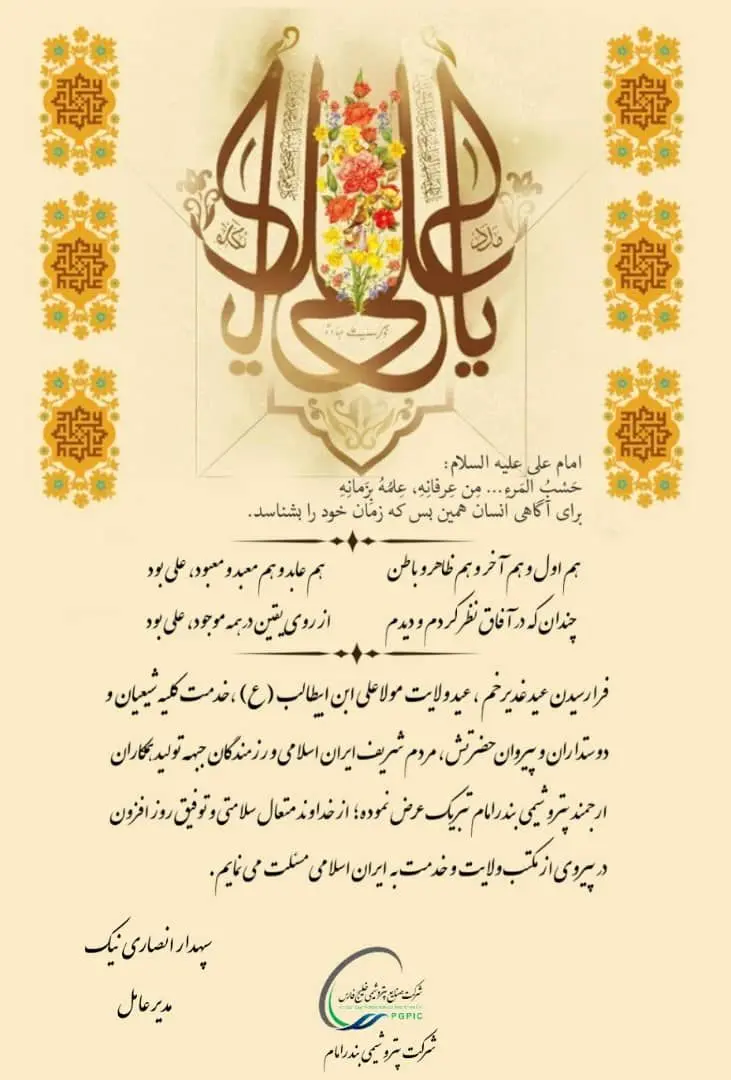 یا علی
مدد
امام علی علیه السلام:
حَسْبُ المَرءِ... مِن عِرفانِهِ، عِلمُهُ بِزَمانِهِ
برای آگاهی انسان همین بس که زمان خود را بشناسد.
هم اول و هم آخر و هم ظاهر و باطن هم عابد و هم معبد و معبود، علی بود
چندان که در آفاق نظر کردم و دیدم از روی یقین در همه موجود، علی بود
فرارسیدن عید غدیر خم ، عید ولایت مولا علی ابن ابیطالب (ع) ، خدمت کلیه شیعیان و
دوستداران و پیروان حضرتش ، مردم شریف ایران اسلامی و رزمندگان جبهه تولید همکاران
ارجمند پتروشیمی بندرامام تبریک عرض نموده؛ از خداوند متعال سلامتی و توفیق روز افزون
در پیروی از مکتب ولایت و خدمت به ایران اسلامی مسئلت می نمایم.
سپهدار انصاری نیک
مدیرعامل
شرکت صنایع پتروشیمی خلیج فارس
PGPIC
شرکت پتروشیمی بندرامام